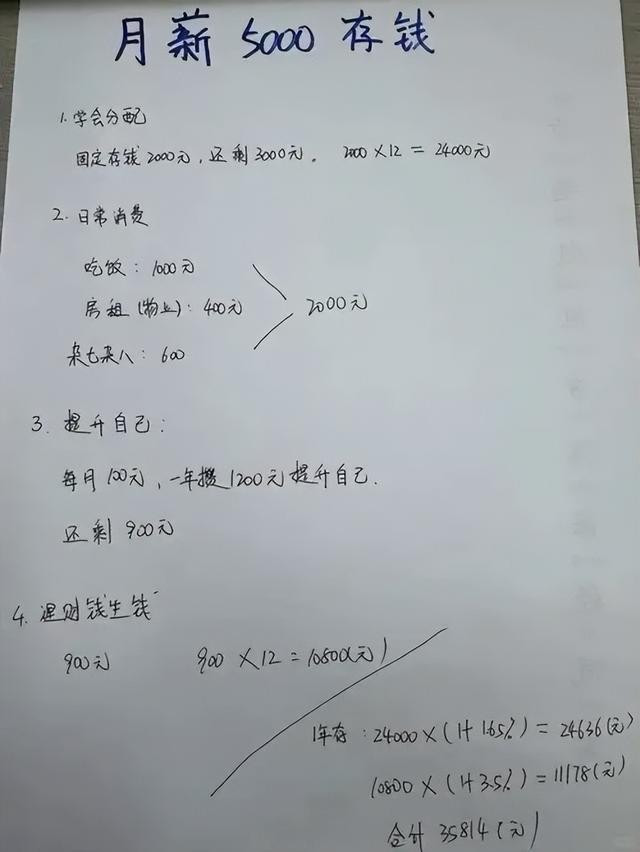 月薪 5000 存钱
1. 学会分配
固定存钱2000元，还剩3000元。 2000×12=24000元
2. 日常消费
吃饭：1000元
房租(物业)：400元
2000元
杂七杂八：600
3. 提升自己：
每月100元，一年攒1200元提升自己.
还剩900元
4. 理财钱生钱
900元 900×12=10800(元)
1年存：24000×(1+1.65%)=24636(元)
10800×(1+3.5%)=11178(元)
合计 35814(元)